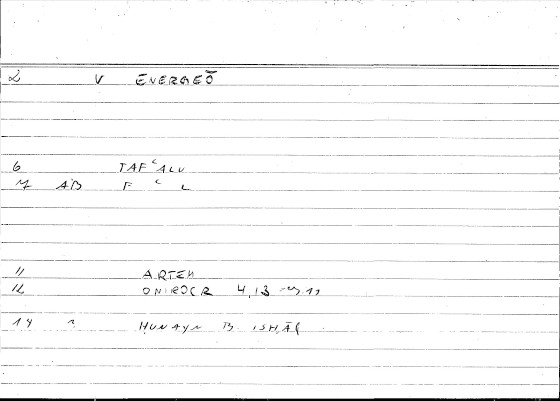 2 V ENERGEŌ
6 TAFʿALU
7 AB F ʿ L
11 ARTEM
12 ONIROCR 4,13
14 HUNAYN B ISHĀQ